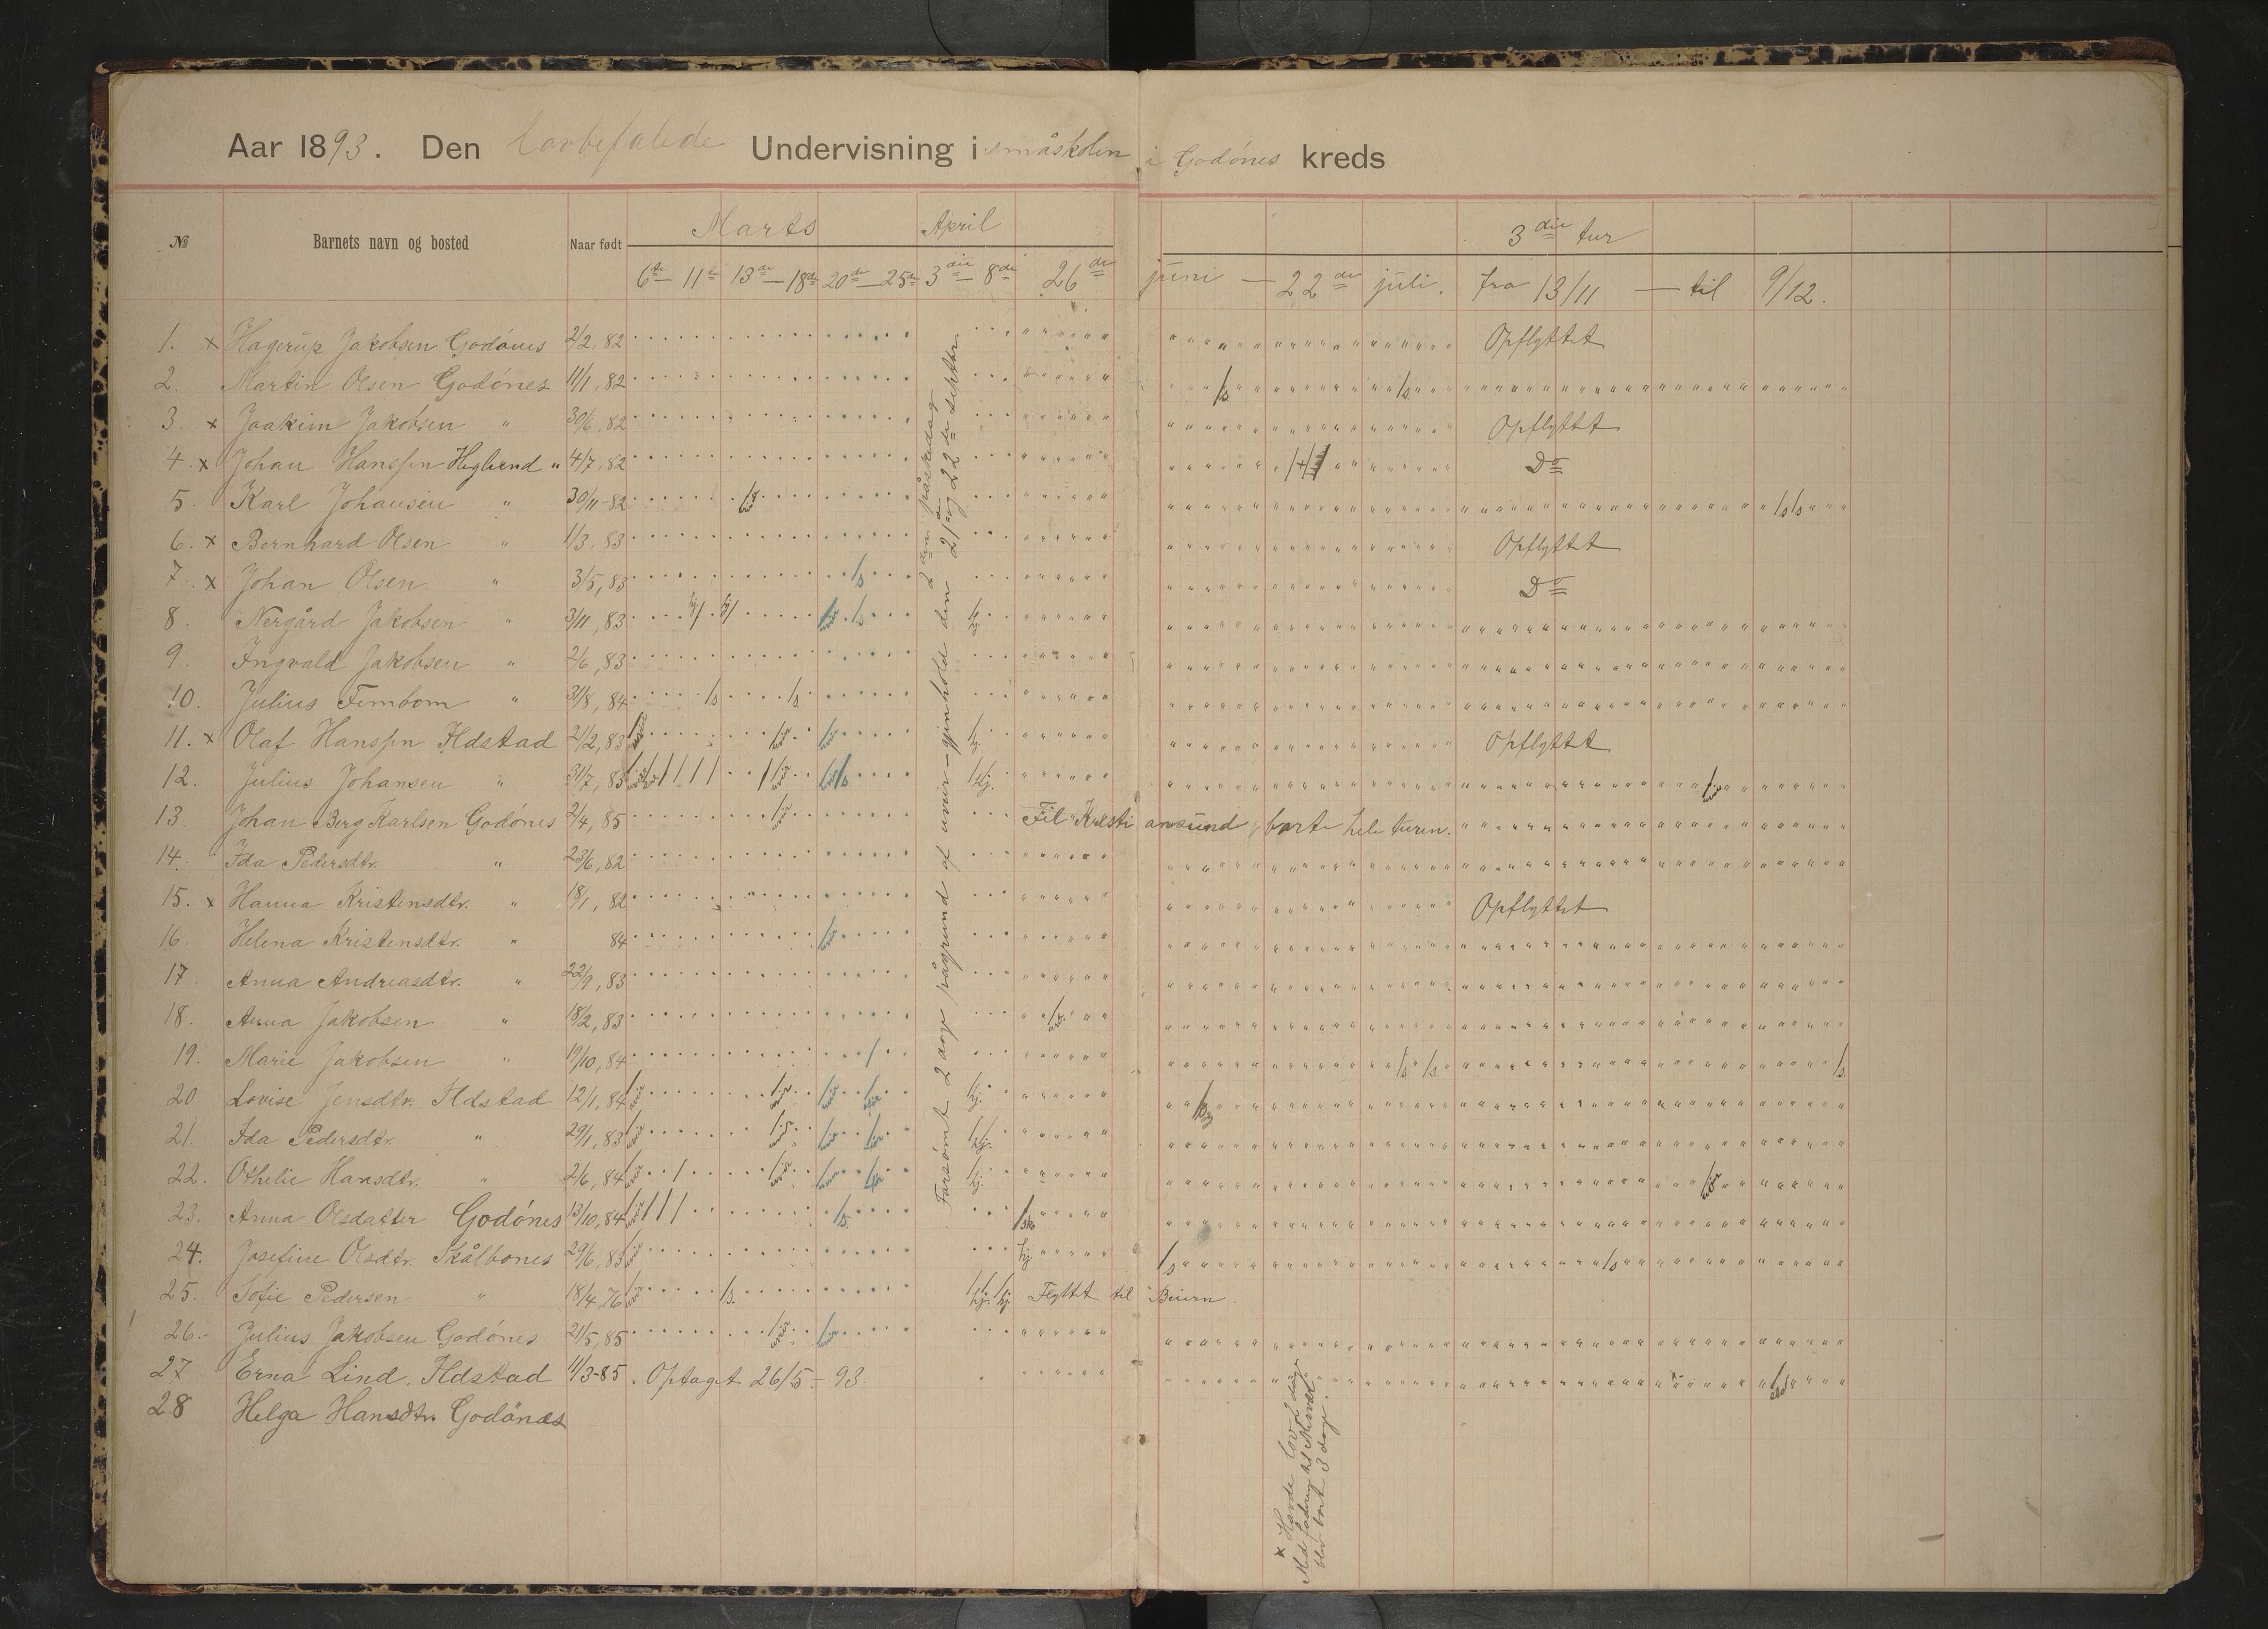 Aar 1893. Den lovbefalede Undervisning i småskolen i Godönes kreds
№ Barnets navn og bosted Naar født Marts April 3die tur
6te — 11te 13de — 18de 20de — 25de 3die — 8de 26de juni — 22de juli. fra 13/11 — til 9/12.
1. x Hagerup Jakobsen Godönes 2/2, 82 Opflyttet
2. Martin Olsen Godönes 11/1, 82
3. x Joakim Jakobsen " 30/6, 82 Opflyttet
4. x Johan Hanssen Heglund " 4/7, 82 Do
5. Karl Johansen " 30/11-82
6. x Bernhard Olsen " 1/3, 83 Opflyttet
7. x Johan Olsen " 3/5, 83 Do
8. Nergård Jakobsen " 3/11, 83
9. Ingvald Jakobsen " 2/6, 83
10. Julius Fembom " 31/8, 84
11. x Olaf Hanssen Ildstad 21/2, 83 Opflyttet
12. Julius Johansen " 31/7, 83
13. Johan Berg Karlsen Godönes 2/4, 85 Til Kristiansund, borte hele turen.
14. Ida Pedersdtr. " 23/6, 82
15. x Hanna Kristensdtr. " 18/1, 82 Opflyttet
16. Helena Kristensdtr. " 84
17. Anna Andreasdtr. " 22/9, 83
18. Anna Jakobsen " 18/2, 83
19. Marie Jakobsen " 19/10, 84
20. Lovise Jensdtr. Ildstad 12/1, 84
21. Ida Pedersdtr. " 29/1, 83
22. Othelie Hansdtr. " 2/6, 84
23. Anna Olsdatter Godönes 13/10, 84
24. Josefine Olsdtr. Skålbones 29/6, 83
25. Sofie Pedersen " 18/4, 76 Flyttet til Beiern
26. Julius Jakobsen Godönes 21/5, 85
27 Erna Lind. Ildstad 11/3-85 . Optaget 26/5 - 93.
28 Helga Hansdtr. Godönes
Forsömt 2 dage pågrund af uveir - gjenholdt den 2den påskedag
21de og 22de septbr.
x Havde lov 2 dage
blev bort 3 dage.